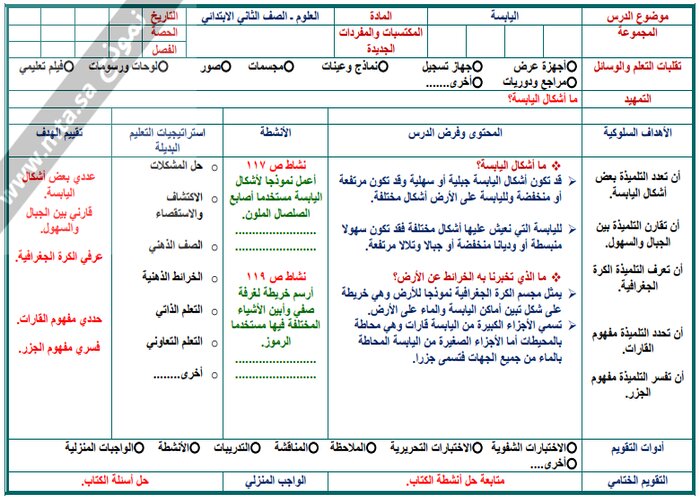 موضوع الدرس
اليابسة
المادة
العلوم ـ الصف الثاني الابتدائي
التاريخ
المجموعة
المكتسبات والمفردات
الجديدة
الحصة
الفصل
تقليات التعلم والوسائل
أجهزة عرض
جهاز تسجيل
نماذج وعينات
مجسمات
صور
لوحات ورسومات
فيلم تعليمي
مراجع ودوريات
أخرى........
التمهيد
ما أشكال اليابسة؟
الأهداف السلوكية
المحتوى وفرض الدرس
الأنشطة
استراتيجيات التعليم
البديلة
تقييم الهدف
أن تعدد التلميذة بعض
أشكال اليابسة.
أن تقارن التلميذة بين
الجبال والسهول.
أن تعرف التلميذة الكرة
الجغرافية.
أن تحدد التلميذة مفهوم
القارات.
أن تفسر التلميذة مفهوم
الجزر.
ما أشكال اليابسة؟
قد تكون أشكال اليابسة جبلية أو سهلية وقد تكون مرتفعة
أو منخفضة ولليابسة على الأرض أشكال مختلفة.
لليابسة التي نعيش عليها أشكال مختلفة فقد تكون سهولا
منبسطة أو وديانا منخفضة أو جبالا وتلالا مرتفعة.
ما الذي تخبرنا به الخرائط عن الأرض؟
يمثل مجسم الكرة الجغرافية نموذجا للأرض وهي خريطة
على شكل تبين أماكن اليابسة والماء على الأرض.
تسمي الأجزاء الكبيرة من اليابسة قارات وهي محاطة
بالمحيطات أما الأجزاء الصغيرة من اليابسة المحاطة
بالماء من جميع الجهات فتسمى جزرا.
نشاط ص ١١٧
أعمل نموذجا لأشكال
اليابسة مستخدما أصابع
الصلصال الملون.
......................
......................
نشاط ص ١١٩
أرسم خريطة لغرفة
صفي وأبين الأشياء
المختلفة فيها مستخدما
الرموز.
......................
......................
حل المشكلات
الاكتشاف
والاستقصاء
الصف الذهني
الخرائط الذهنية
التعلم الذاتي
التعلم التعاوني
أخرى........
عددي بعض أشكال
اليابسة.
قارني بين الجبال
والسهول.
عرفي الكرة الجغرافية.
حددي مفهوم القارات.
فسري مفهوم الجزر.
أدوات التقويم
الاختبارات الشفوية
الاختبارات التحريرية
الملاحظة
المناقشة
التدريبات
الأنشطة
الواجبات المنزلية
أخرى....
التقويم الختامي
متابعة حل أنشطة الكتاب.
الواجب المنزلي
حل أسئلة الكتاب.